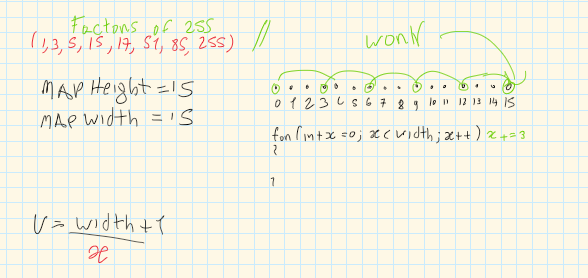 Factors of 255
(1,3,5,15,17,51,85,255) //
MAP Height = 15
MAP width = 15
V = width + 1
x
work
0 1 2 3 4 5 6 7 8 9 10 11 12 13 14 15
for (int x = 0; x < width; x++) x += 3
{
}